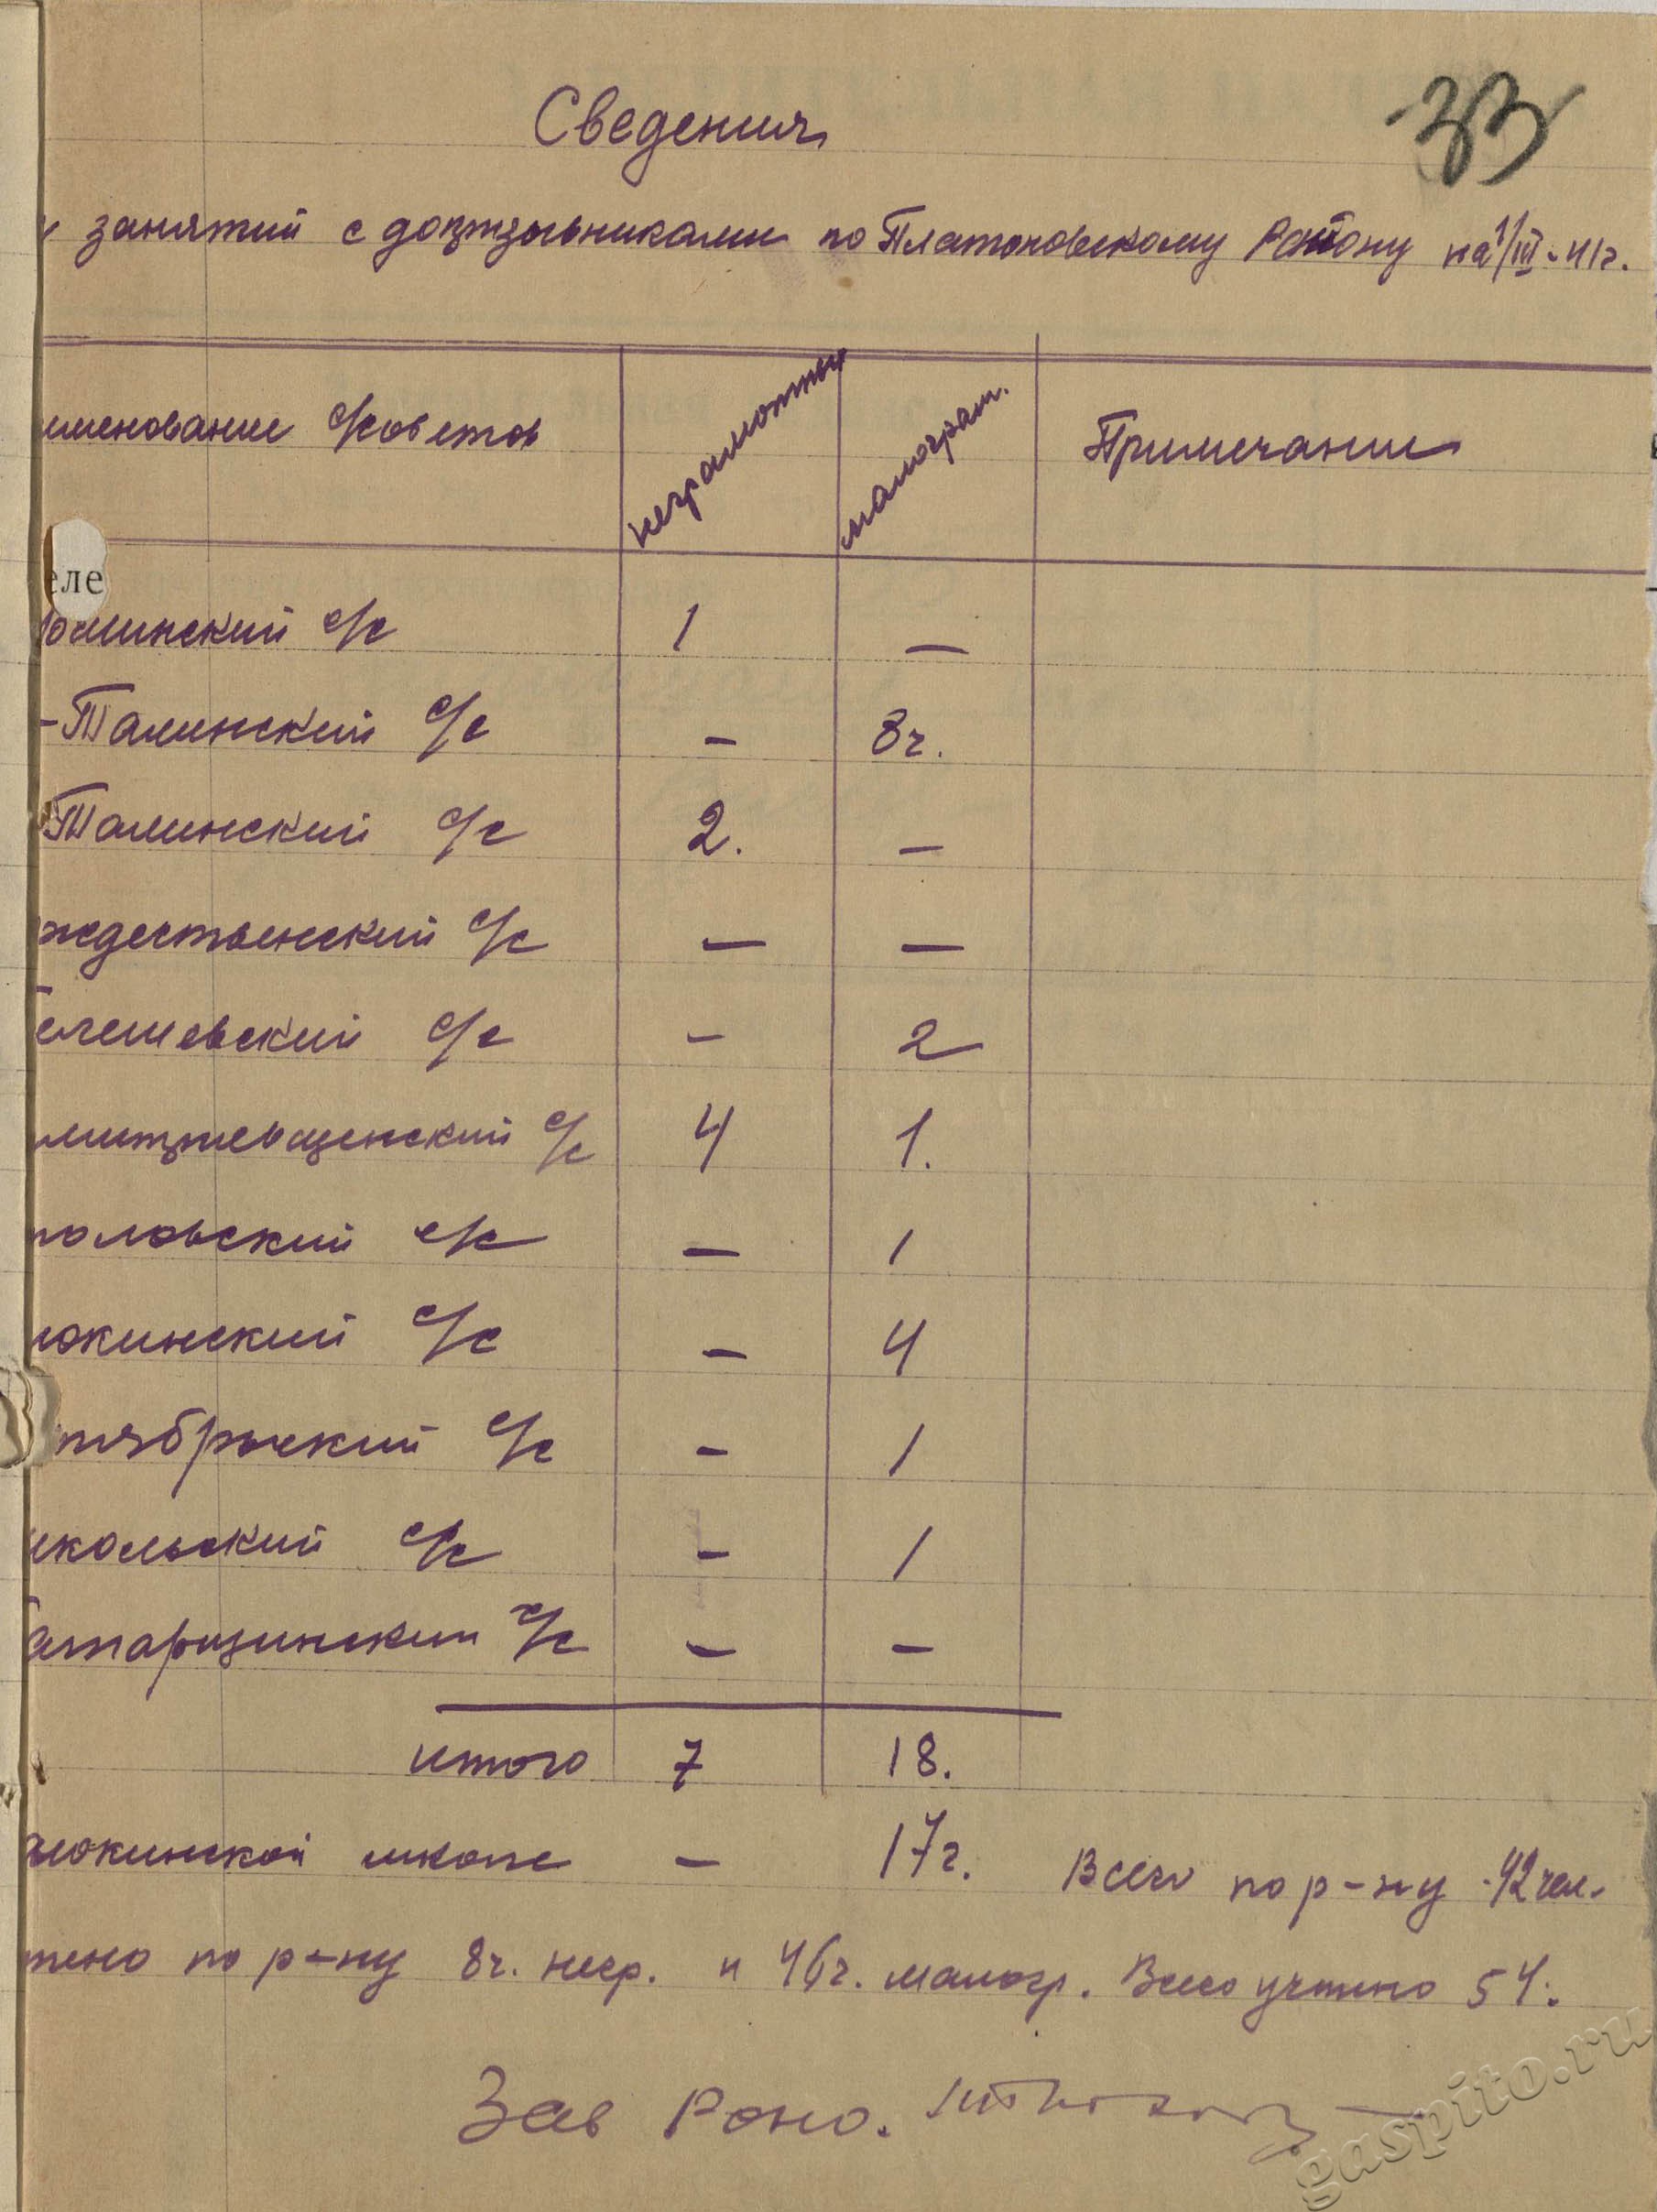 33
Сведения
занятий с допризывниками по Платоновскому Району на 1/III-41г.
именование с/советов неграмотных малограм. Примечание
еле
оминский с/с 1 —
-Талинский с/с — 8ч.
Талинский с/с 2. —
ждественский с/с — —
елешевский с/с — 2
митриевщенский с/с 4 1.
половский с/с — 1
юкинский с/с — 4
тябрьский с/с — 1
икольский с/с — 1
атарщинский с/с — —
итого 7 18.
алюкинской школе — 17ч. Всего по р-ну 42 чел.
тено по р-ну 8ч. негр. и 46ч. малогр. Всего учтено 54.
Зав Роно.
gaspito.ru